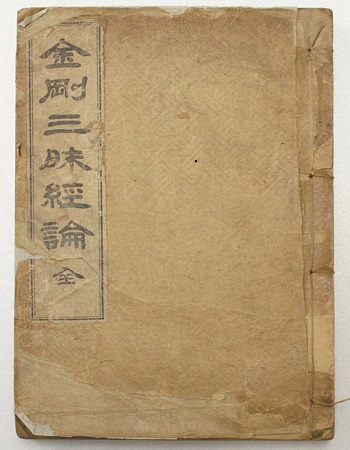 金剛三昧經論 全